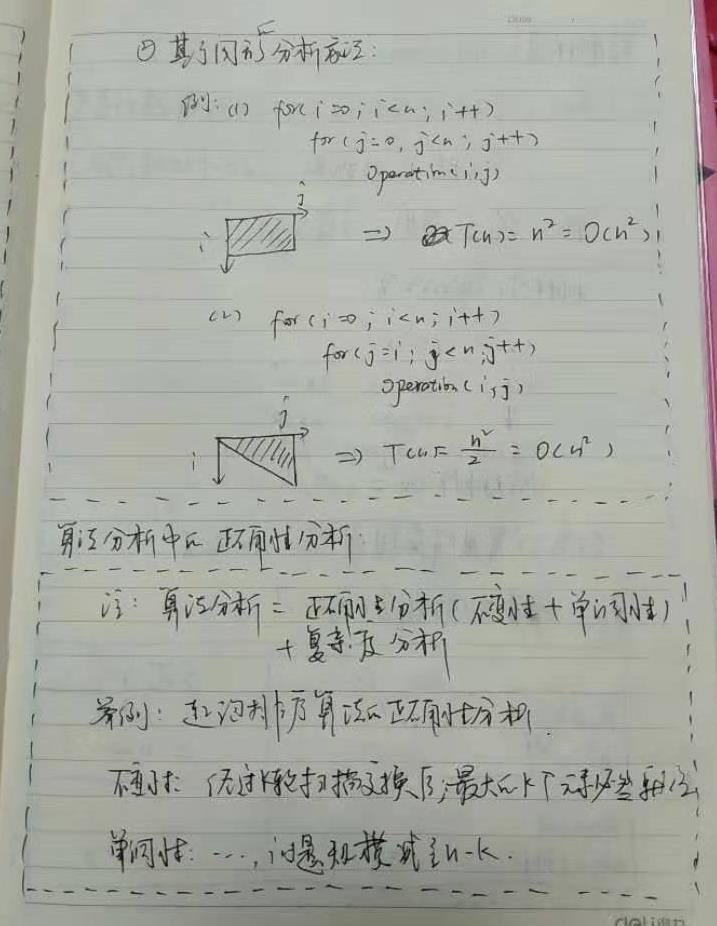 ② 基于图形分析方法:
例:(1) for(i=0; i<n; i++)
for(j=0, j<n; j++)
operation(i,j)
j
i
⇒ T(n)=n²=O(n²)
(2) for(i=0; i<n; i++)
for(j=i; j<n; j++)
operation(i,j)
j
i
⇒ T(n)= n²/2 = O(n²)
算法分析中的正确性分析:
注: 算法分析 = 正确性分析(不变性+单调性)
+复杂度分析
举例: 起泡排序算法的正确性分析.
不变性: 经过k轮扫描交换后,最大的k个元素必然就位
单调性: ..., 问题规模减至n-k.
deli